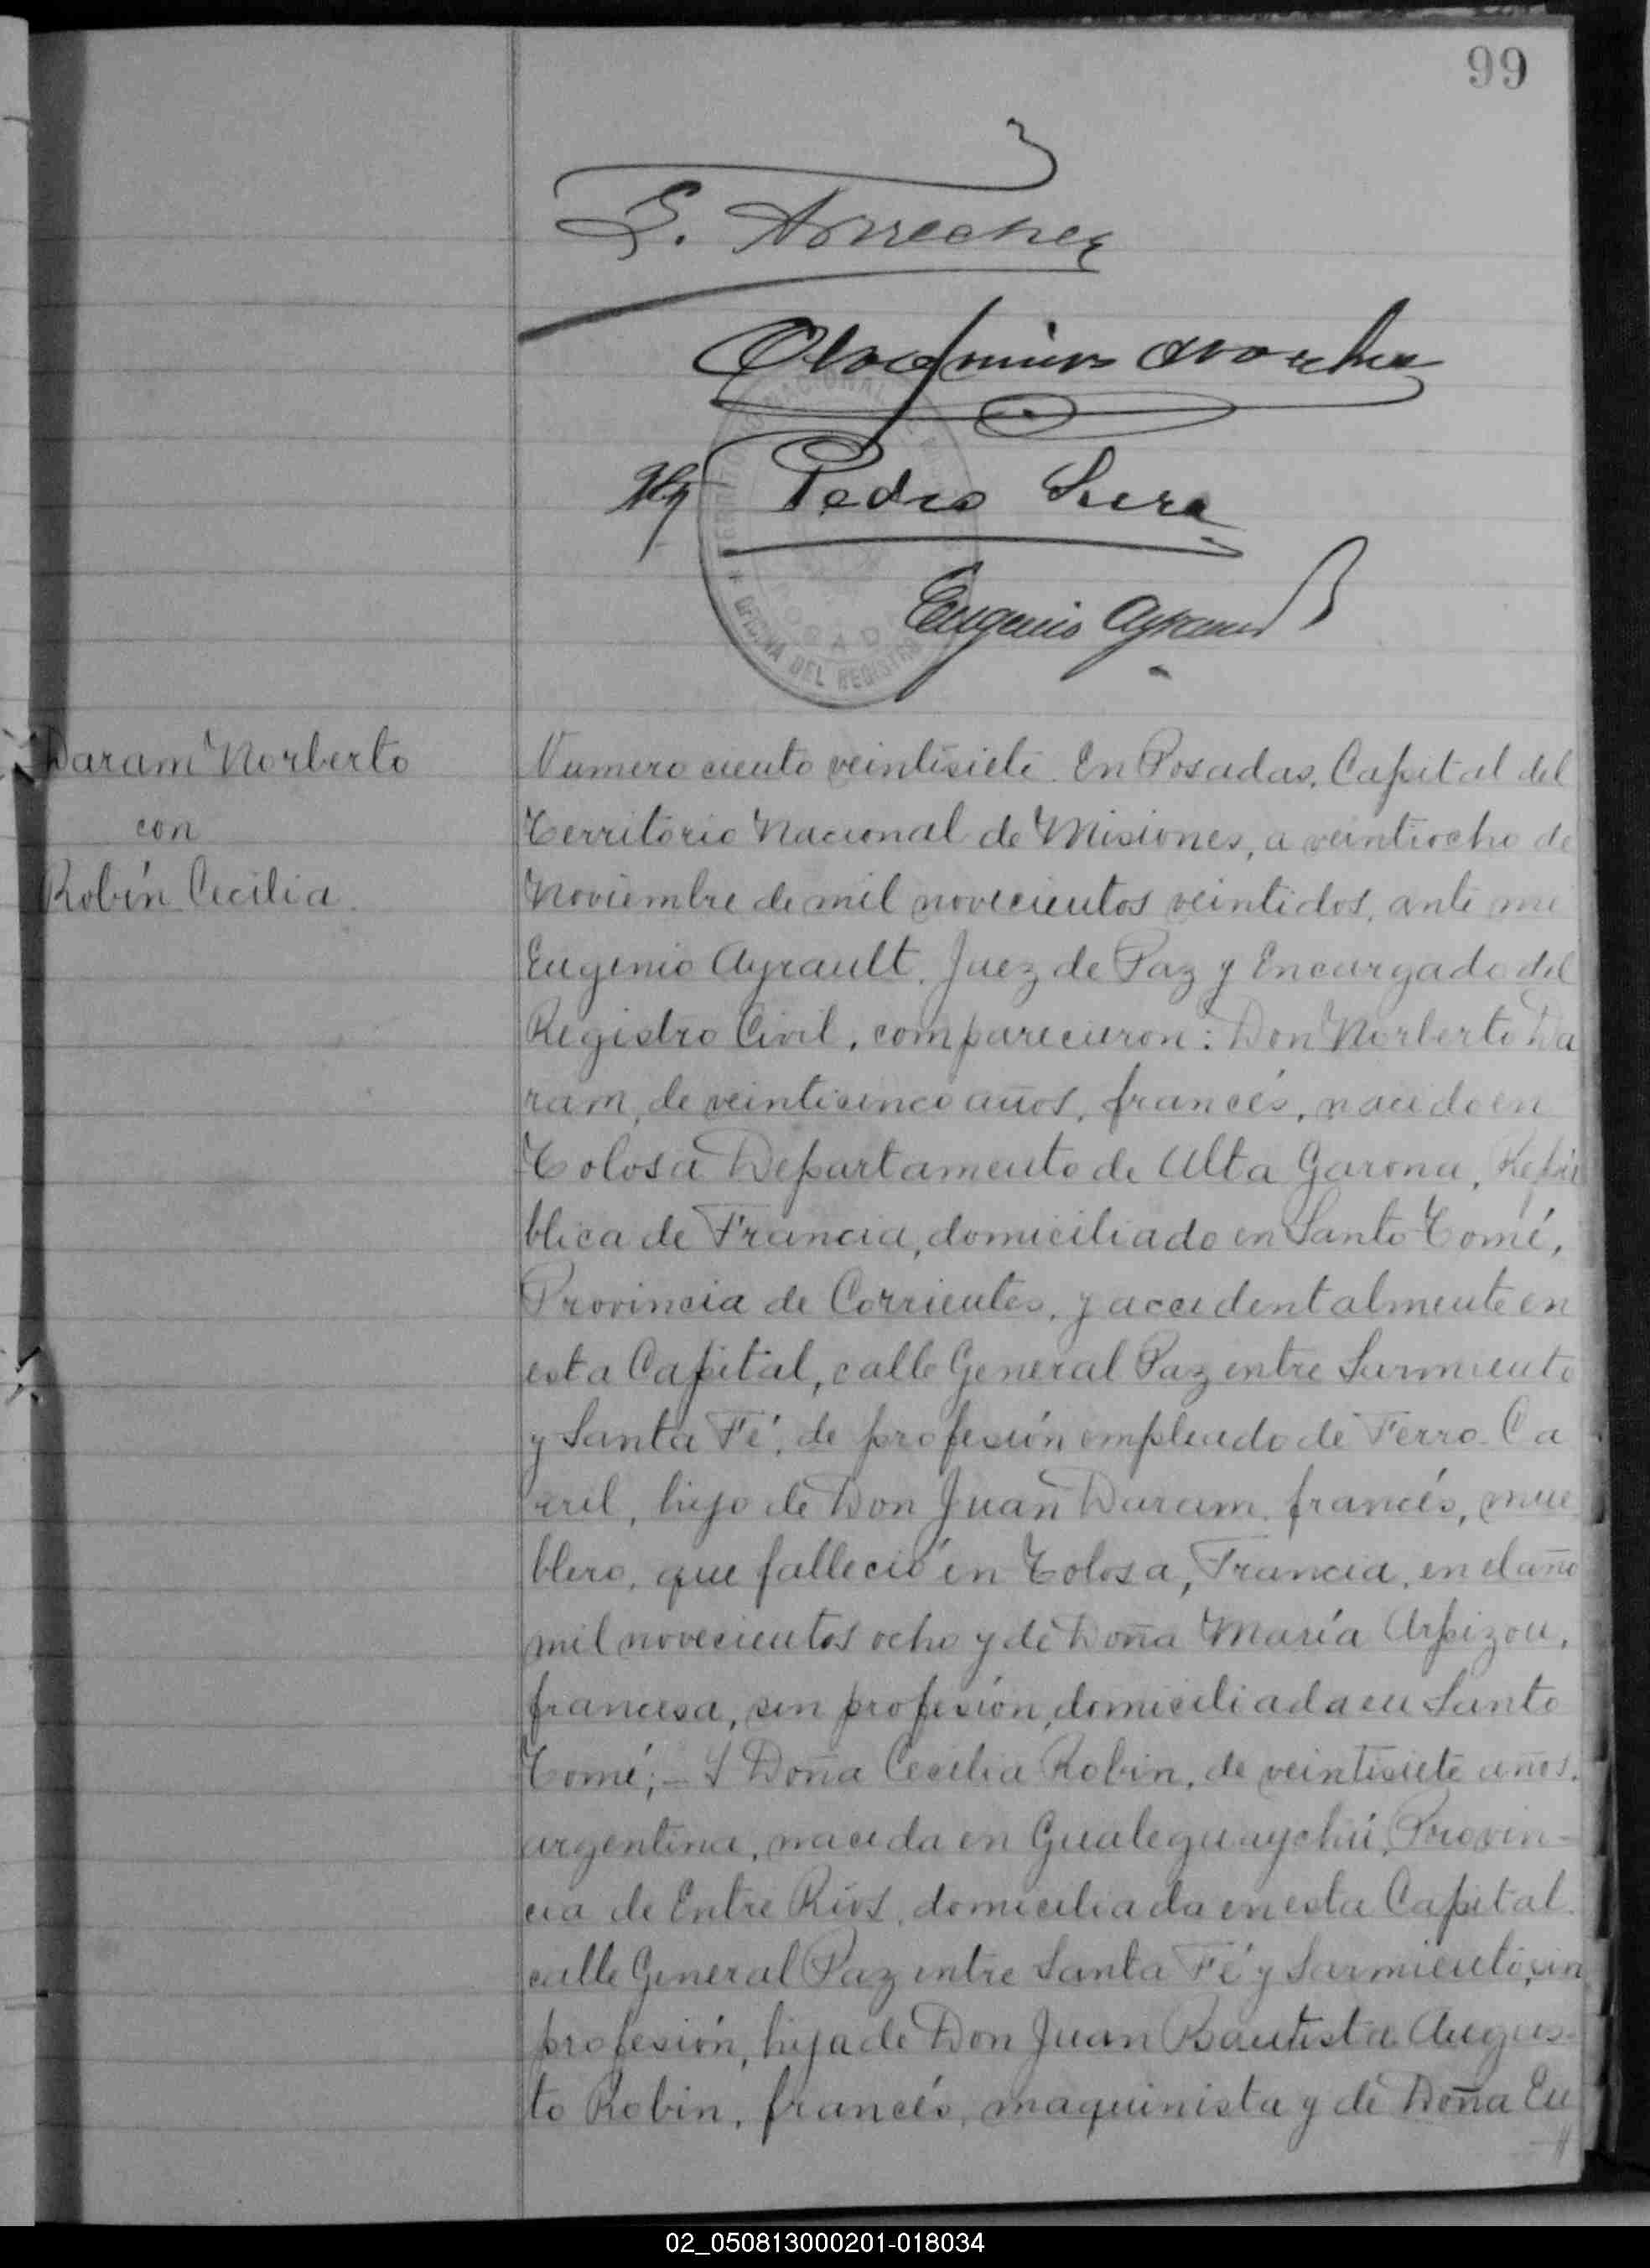 99
Pedro
Eugenio Ayrault
OFICINA DEL REGISTRO
Daram Norberto
con
Robín Cecilia.
Numero ciento veintisiete. En Posadas, Capital del
Territorio Nacional de Misiones, a veintiocho de
Noviembre de mil novecientos veintidos, ante mi
Eugenio Ayrault, Juez de Paz y Encargado del
Registro Civil, comparecieron: Don Norberto Da
ram, de veinticinco años, francés, nacido en
Tolosa Departamento de Alta Garona, Repú
blica de Francia, domiciliado en Santo Tomé,
Provincia de Corrientes, y accidentalmente en
esta Capital, calle General Paz entre Sarmiento
y Santa Fé, de profesión empleado de Ferro-Ca
rril, hijo de Don Juan Daram, francés, mue
blero, que falleció en Tolosa, Francia, en el año
mil novecientos ocho y de Doña María Arpizou,
francesa, sin profesión, domiciliada en Santo
Tomé; - Y Doña Cecilia Robin, de veintisiete años,
argentina, nacida en Gualeguaychú, Provin-
cia de Entre Ríos, domiciliada en esta Capital
calle General Paz entre Santa Fé y Sarmiento, sin
profesión, hija de Don Juan Bautista Augus-
to Robin, francés, maquinista y de Doña Eu
02_050813000201-018034